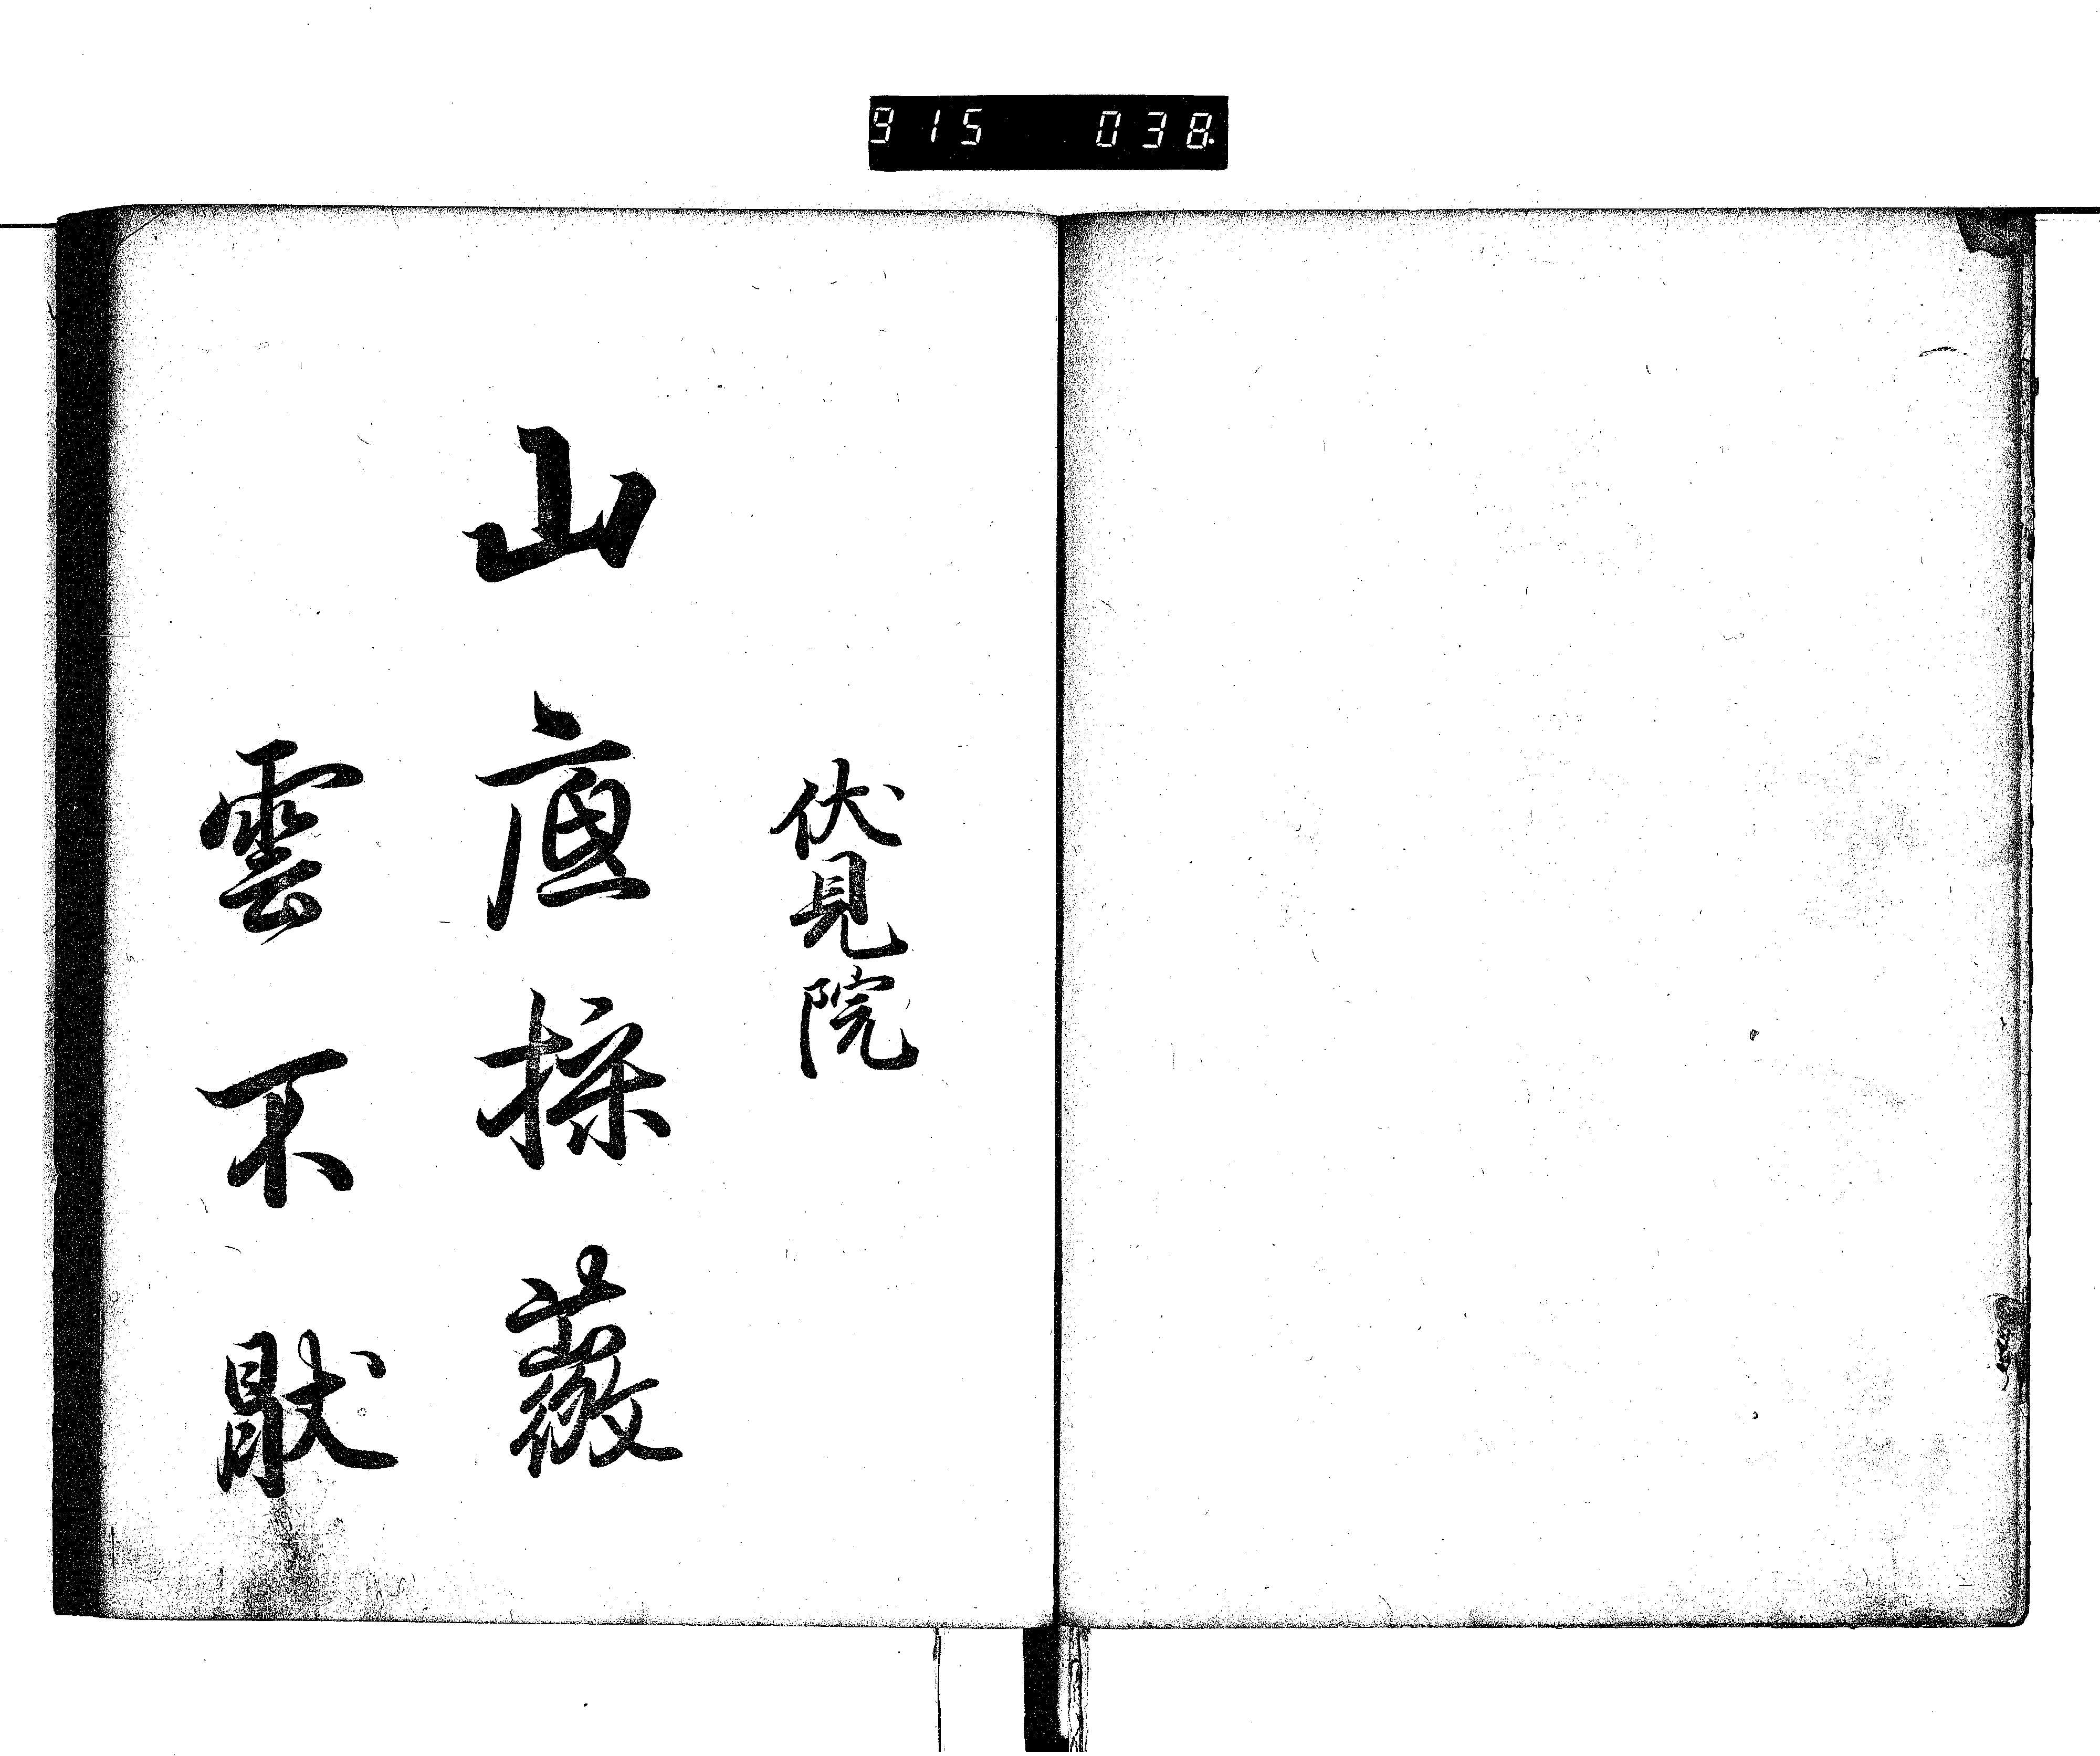 915 038
伏見院
山底採薇
雲不猒